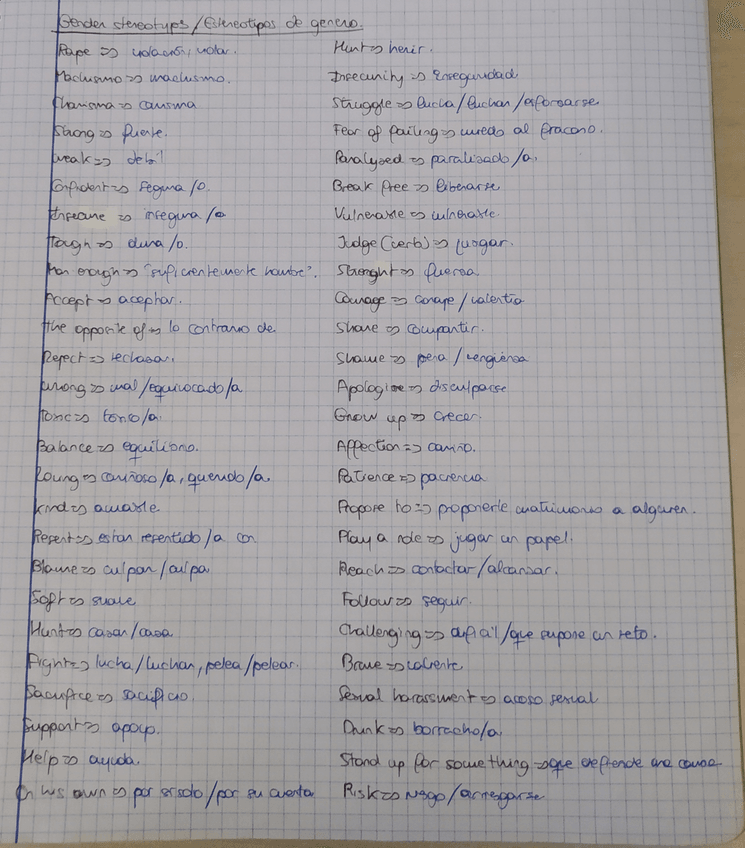 Gender stereotyps / Estereotipos de genero.
Rape => violación, violar.
Machismo => machismo.
Charisma => carisma
Strong => fuerte.
Weak => debil
Confident => segura/o.
Insecure => insegura/o
Tough => dura/o.
Man enough => "suficientemente hombre".
Accept => aceptar.
the opposite of => lo contrario de
Reject => rechazar.
Wrong => mal/equivocado/a
Toxic => toxico/a.
Balance => equilibrio.
Loving => cariñoso/a, querido/a.
Kind => amable
Resent => estar resentido/a con
Blame => culpar/culpa
Soft => suave
Hunt => cazar/caza
Fight => lucha/luchar, pelea/pelear.
Sacrifice => sacrificio.
Support => apoyo.
Help => ayuda.
On his own => por si solo/por su cuenta
Hurt => herir.
Insecurity => Inseguridad
Struggle => lucha/luchar/esforzarse
Fear of failing => miedo al fracaso.
Paralysed => paralizado/a.
Break free => liberarse
Vulnerable => vulnerable.
Judge (verb) => juzgar.
Strenght => fuerza
Courage => coraje/valentia
Share => compartir.
Shame => pena/vergüenza
Apologise => disculparse
Grow up => crecer.
Affection => cariño.
Patience => paciencia
Propose to => proponerle matrimonio a alguien.
Play a role => jugar un papel.
Reach => contactar/alcanzar.
Follow => seguir.
Challenging => dificil/que supone un reto.
Brave => valiente
Sexual harassment => acoso sexual
Drunk => borracho/a
Stand up for something => que defiende una causa
Risk => riesgo/arriesgarse